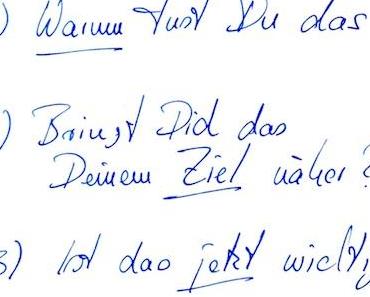 ) Warum tust Du das
) Bringt Dich das
Deinem Ziel näher?
3) Ist das jetzt wichtig